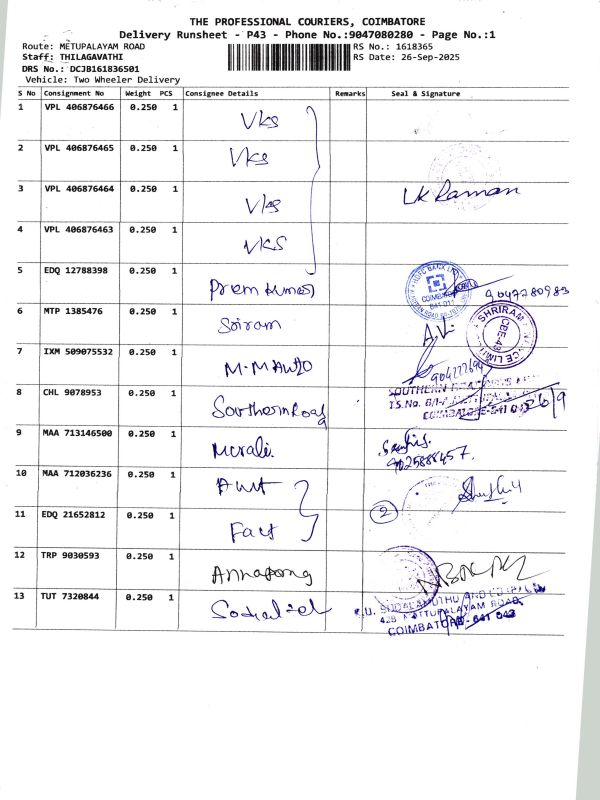 THE PROFESSIONAL COURIERS, COIMBATORE
Delivery Runsheet - P43 - Phone No.:9047080280 - Page No.:1
Route: METUPALAYAM ROAD RS No.: 1618365
Staff: THILAGAVATHI RS Date: 26-Sep-2025
DRS No.: DCJB161836501
Vehicle: Two Wheeler Delivery
S No Consignment No Weight PCS Consignee Details Remarks Seal & Signature
1 VPL 406876466 0.250 1 VKS
2 VPL 406876465 0.250 1 VKS
3 VPL 406876464 0.250 1 VKS LK Raman
4 VPL 406876463 0.250 1 VKS
5 EDQ 12788398 0.250 1 Prem Kumar HDFC BANK COIMBATORE 641 011 9047780983
6 MTP 1385476 0.250 1 Sriram SHRIRAM LIMITED CBE-43
7 IXM 509075532 0.250 1 M.M Auto
8 CHL 9078953 0.250 1 Southern Road SOUTHERN COIMBATORE-641 043
9 MAA 713146500 0.250 1 Murali 9025888457
10 MAA 712036236 0.250 1
11 EDQ 21652812 0.250 1 Fact 2
12 TRP 9030593 0.250 1
13 TUT 7320844 0.250 1 AND
METTUPALAYAM ROAD,
COIMBATORE - 641 043